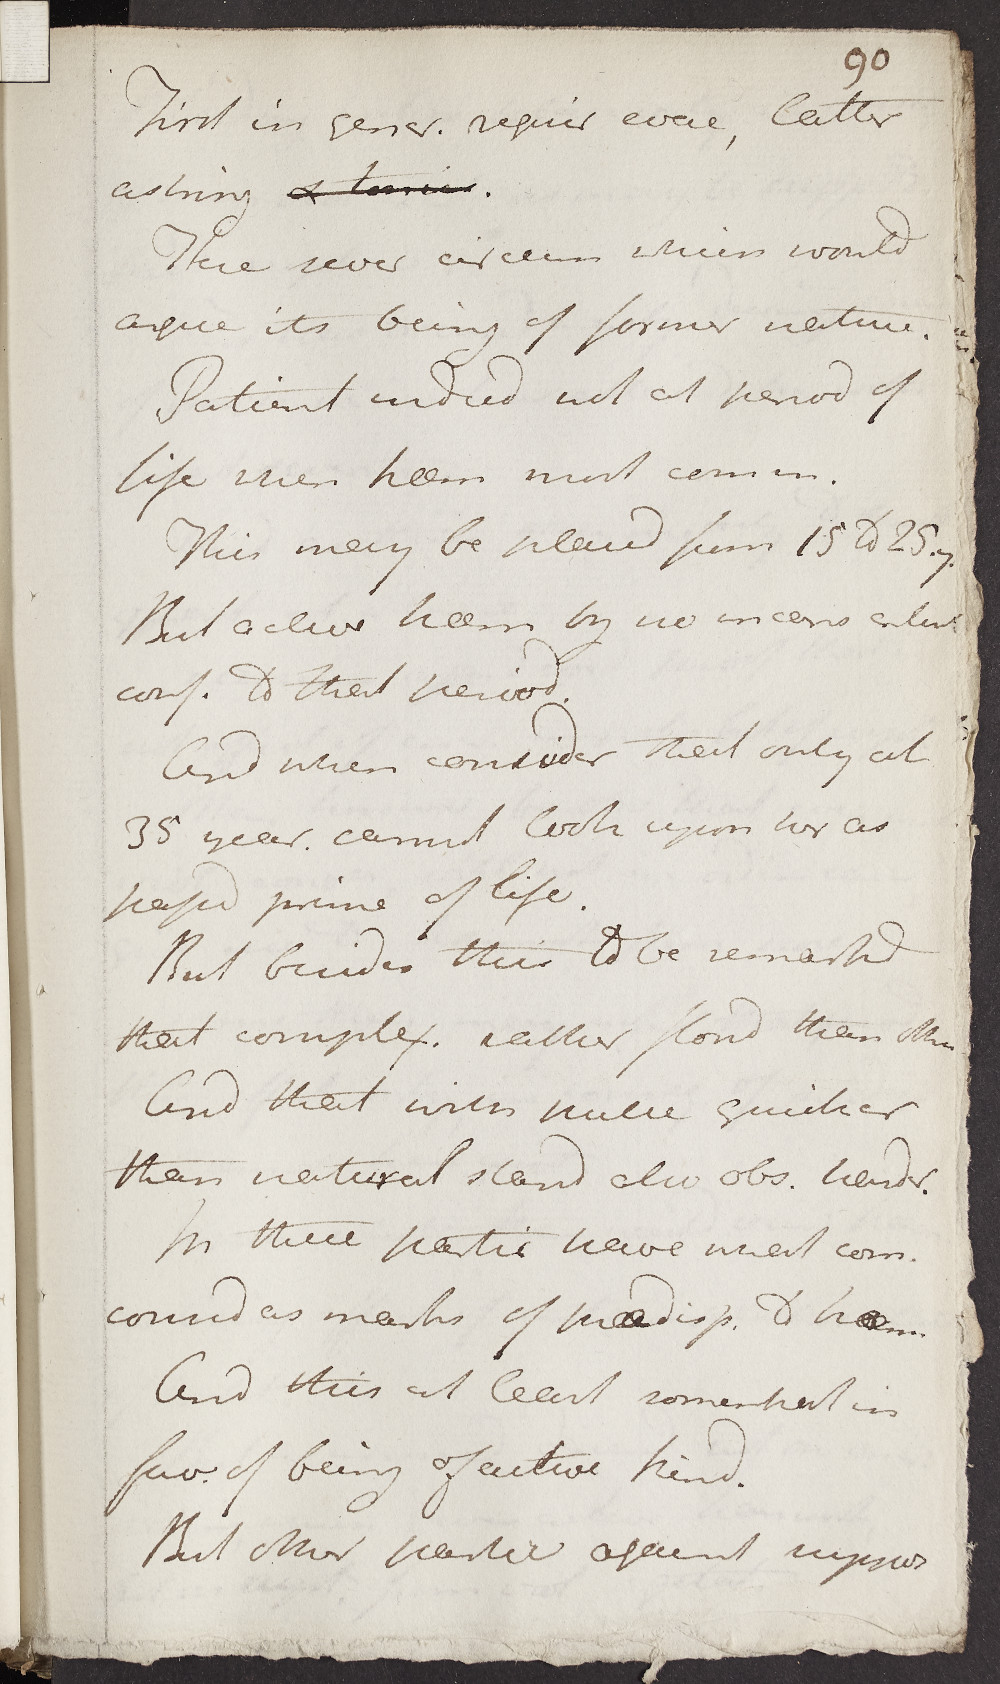 90
First in gener. requir evac, latter
astring & tonics.
There sever circum which would
argue its being of former nature.
Patient indeed not at period of
life when hæm most comm.
This may be placed from 15 to 25.y.
But active hæm by no means
conf. to that period.
And when consider that only at
35 year. cannot look upon her as
passd prime of life.
But besides this to be remarkd
that complex. rather flond than other
And that with pulse quicker
than natural stand also obs. harder.
In these partic have what com.
considas marks of predisp. to hæm
And this at least somewhat in
fav. of being of active kind.
But other partic against suppos